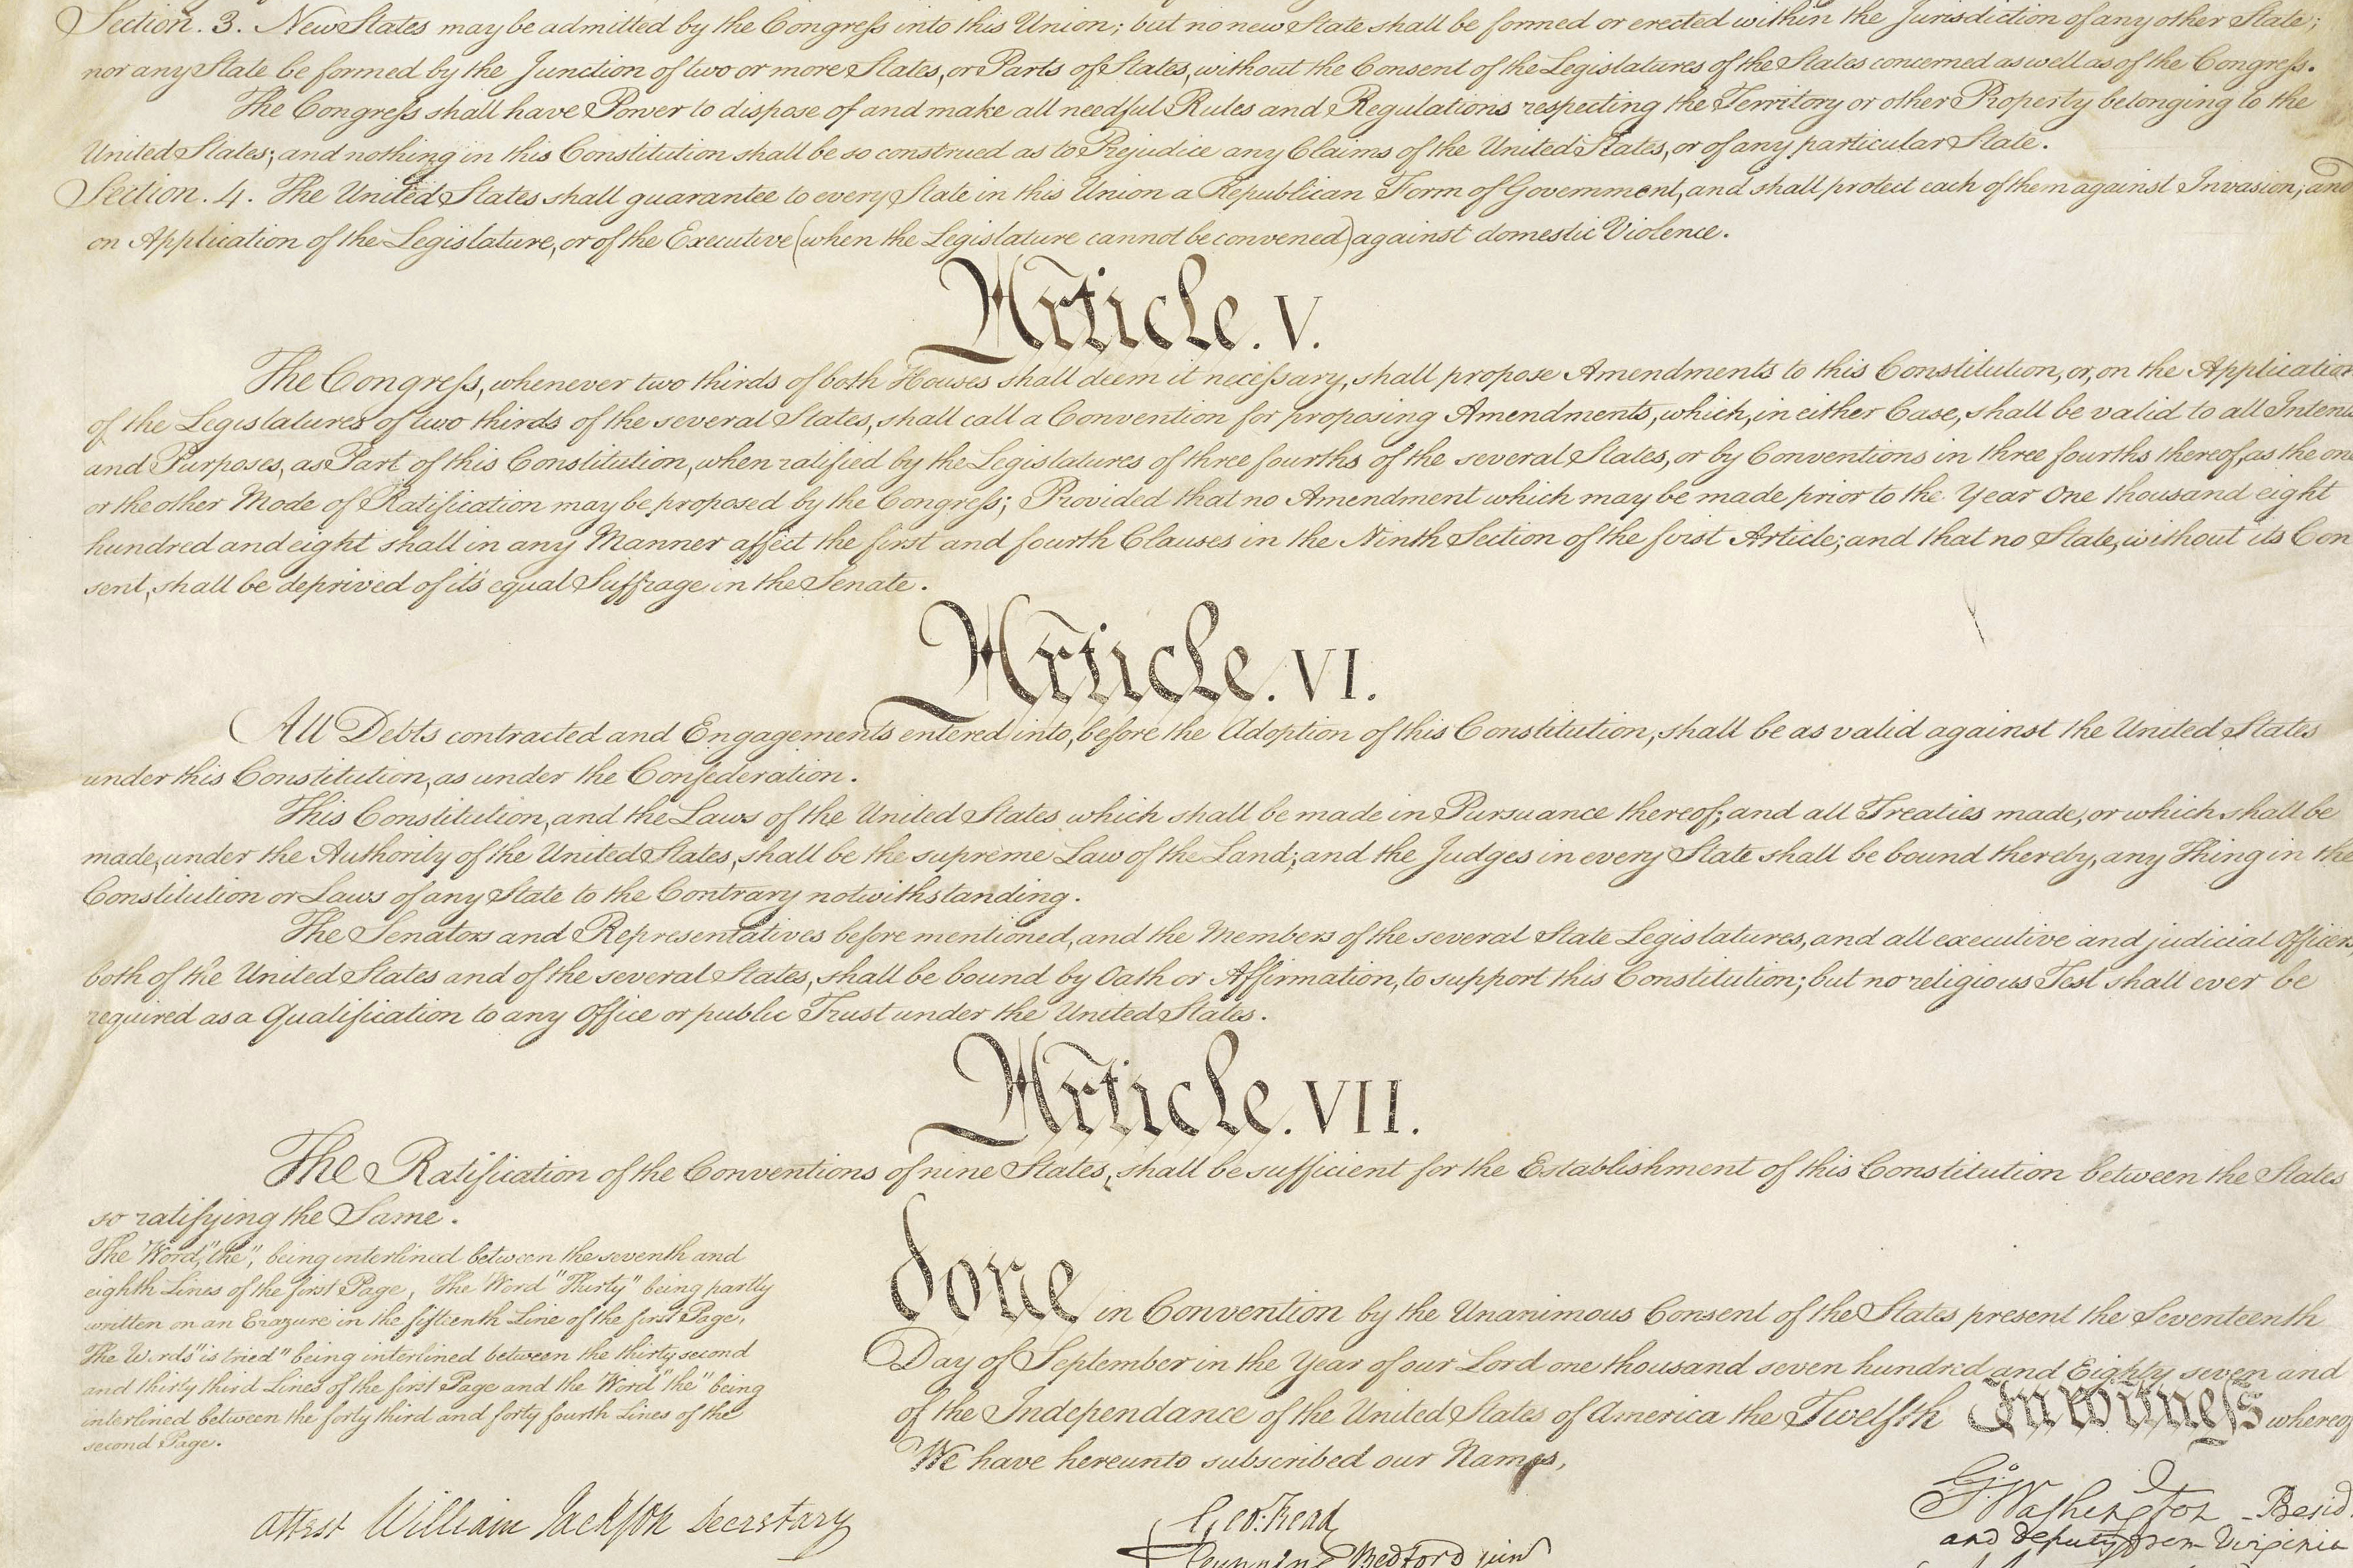 Section. 3. New States may be admitted by the Congress into this Union; but no new State shall be formed or erected within the Jurisdiction of any other State;
nor any State be formed by the Junction of two or more States, or Parts of States, without the Consent of the Legislatures of the States concerned as well as of the Congress.
The Congress shall have Power to dispose of and make all needful Rules and Regulations respecting the Territory or other Property belonging to the
United States; and nothing in this Constitution shall be so construed as to Prejudice any Claims of the United States, or of any particular State.
Section. 4. The United States shall guarantee to every State in this Union a Republican Form of Government, and shall protect each of them against Invasion; and
on Application of the Legislature, or of the Executive (when the Legislature cannot be convened) against domestic Violence.
Article. V.
The Congress, whenever two thirds of both Houses shall deem it necessary, shall propose Amendments to this Constitution, or, on the Application
of the Legislatures of two thirds of the several States, shall call a Convention for proposing Amendments, which, in either Case, shall be valid to all Intents
and Purposes, as Part of this Constitution, when ratified by the Legislatures of three fourths of the several States, or by Conventions in three fourths thereof, as the one
or the other Mode of Ratification may be proposed by the Congress; Provided that no Amendment which may be made prior to the Year One thousand eight
hundred and eight shall in any Manner affect the first and fourth Clauses in the Ninth Section of the first Article; and that no State, without its Con
sent, shall be deprived of it's equal Suffrage in the Senate.
Article. VI.
All Debts contracted and Engagements entered into, before the Adoption of this Constitution, shall be as valid against the United States
under this Constitution, as under the Confederation.
This Constitution, and the Laws of the United States which shall be made in Pursuance thereof; and all Treaties made, or which shall be
made, under the Authority of the United States, shall be the supreme Law of the Land; and the Judges in every State shall be bound thereby, any Thing in the
Constitution or Laws of any State to the Contrary notwithstanding.
The Senators and Representatives before mentioned, and the Members of the several State Legislatures, and all executive and judicial Officers,
both of the United States and of the several States, shall be bound by Oath or Affirmation, to support this Constitution; but no religious Test shall ever be
required as a Qualification to any Office or public Trust under the United States.
Article. VII.
The Ratification of the Conventions of nine States, shall be sufficient for the Establishment of this Constitution between the States
so ratifying the Same.
The Word, "the", being interlined between the seventh and
eighth Lines of the first Page, The Word "Thirty" being partly
written on an Erazure in the fifteenth Line of the first Page,
The Words "is tried" being interlined between the thirty second
and thirty third Lines of the first Page and the Word "the" being
interlined between the forty third and forty fourth Lines of the
second Page.
done in Convention by the Unanimous Consent of the States present the Seventeenth
Day of September in the Year of our Lord one thousand seven hundred and Eighty seven and
of the Independance of the United States of America the Twelfth In witness whereof
We have hereunto subscribed our Names,
attest William Jackson Secretary
Geo: Read
Gunning Bedford jun
Go Washington - Presid
and deputy from Virginia